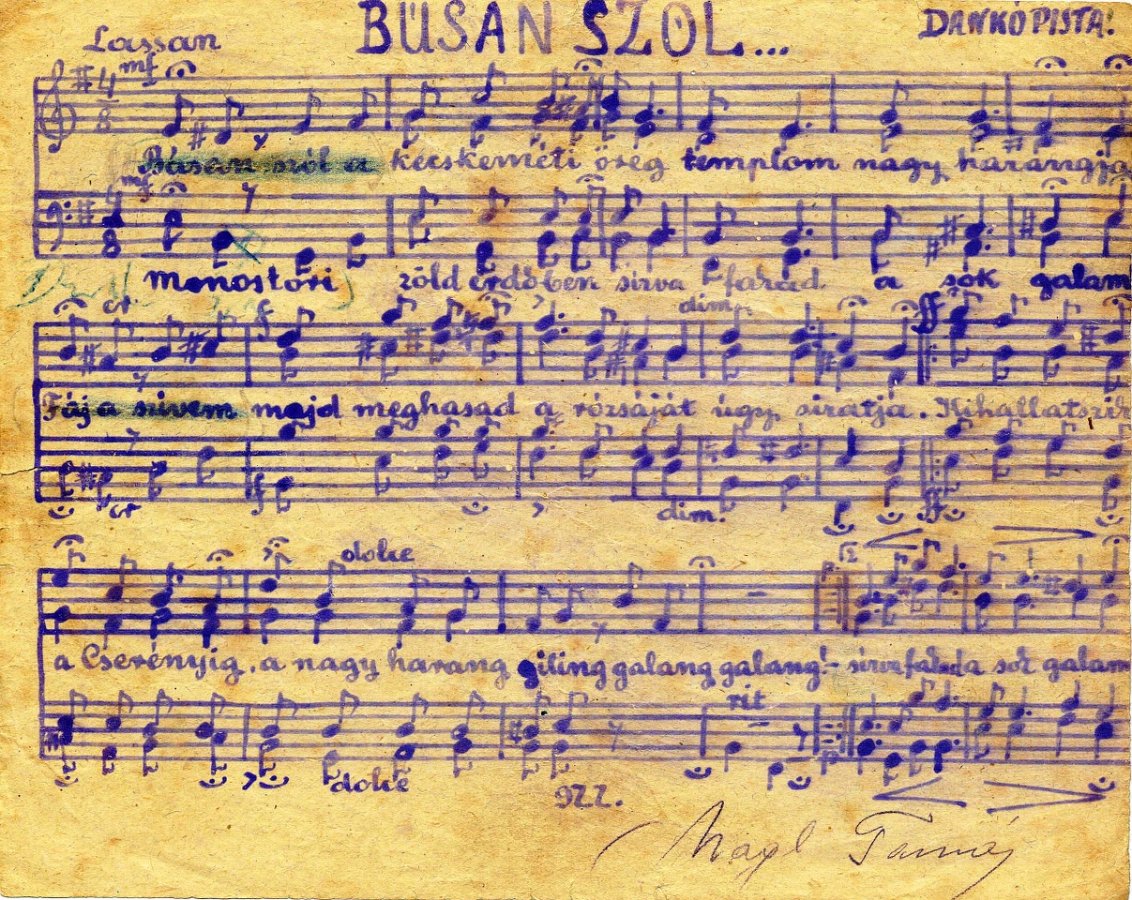 BÚSAN SZÓL...
DANKÓ PISTA:
Lassan
mf
4/8
Búsan szól a kécskeméti öreg templom nagy harangja
mf
4/8
monostóri zöld erdőben sirva fakad a sok galam
cr f dim. ff
Fáj a szivem majd meghasad a rózsáját úgy siratja. Kihallatszik
cr f dim. ff
dolce
a Cserényig. a nagy harang giling galang galang! - sirva fakad a sok galam
rit
dolce
977.
Nagl Tamás